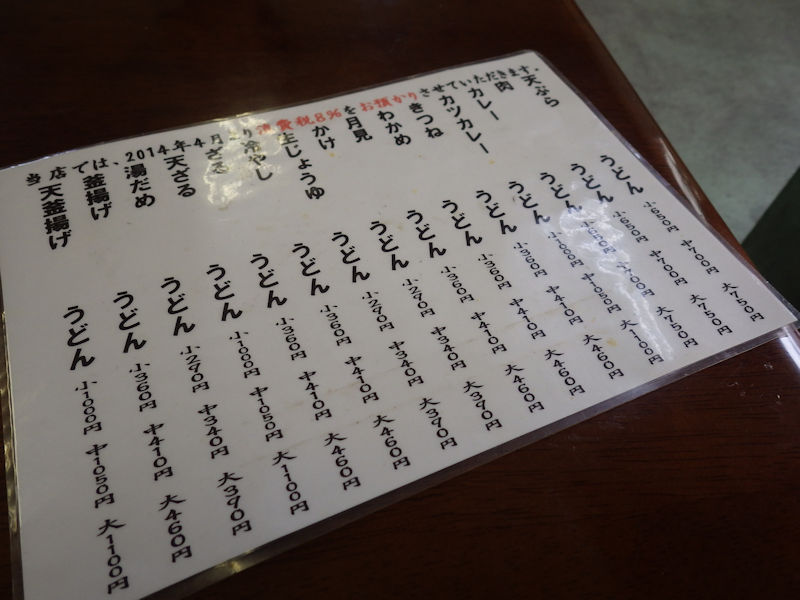 当店では、2014年4月より消費税8%をお預かりさせていただきます。
天ぷら うどん 小650円 中700円 大750円
肉 うどん 小650円 中700円 大750円
カレー うどん 小650円 中700円 大750円
カツカレー うどん 小1000円 中1050円 大1100円
きつね うどん 小360円 中410円 大460円
わかめ うどん 小360円 中410円 大460円
月見 うどん 小360円 中410円 大460円
かけ うどん 小270円 中340円 大370円
生じょうゆ うどん 小270円 中340円 大370円
冷やし うどん 小360円 中410円 大460円
ざる うどん 小360円 中410円 大460円
天ざる うどん 小1000円 中1050円 大1100円
湯だめ うどん 小270円 中340円 大370円
釜揚げ うどん 小360円 中410円 大460円
天釜揚げ うどん 小1000円 中1050円 大1100円